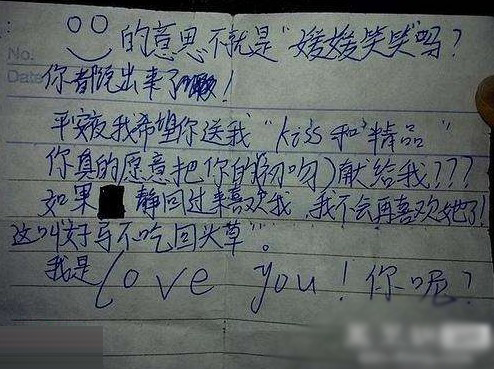 No.
的意思不就是"媛媛笑笑"吗?
Date
你都说出来了啊!
平安夜我希望你送我"kiss和"精品"
你真的愿意把你的(初吻)献给我???
如果 静回过来喜欢我,我不会再喜欢她了!
这叫"好马不吃回头草"。
我是Love you!你呢?